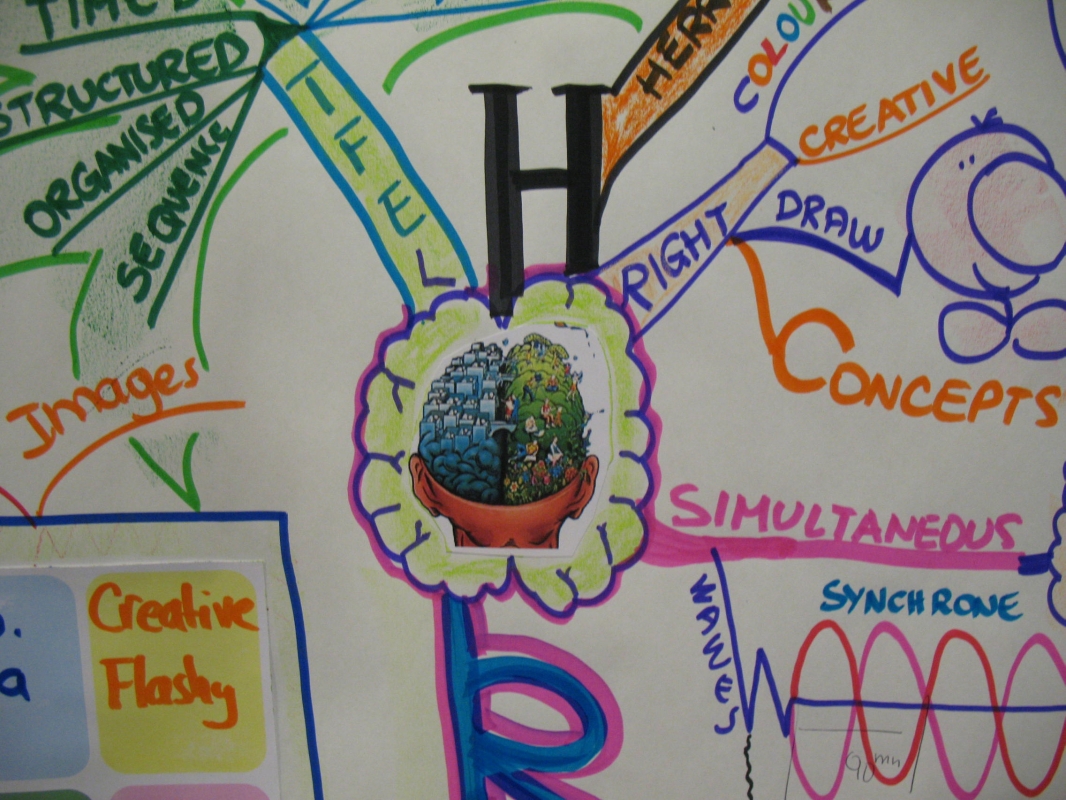 TIME
STRUCTURED
ORGANISED
SEQUENCE
LEFT
H
HERR
COLOUR
CREATIVE
RIGHT
DRAW
CONCEPTS
Images
SIMULTANEOUS
SYNCHRONE
WAWES
90mn
Creative
Flashy
a
R